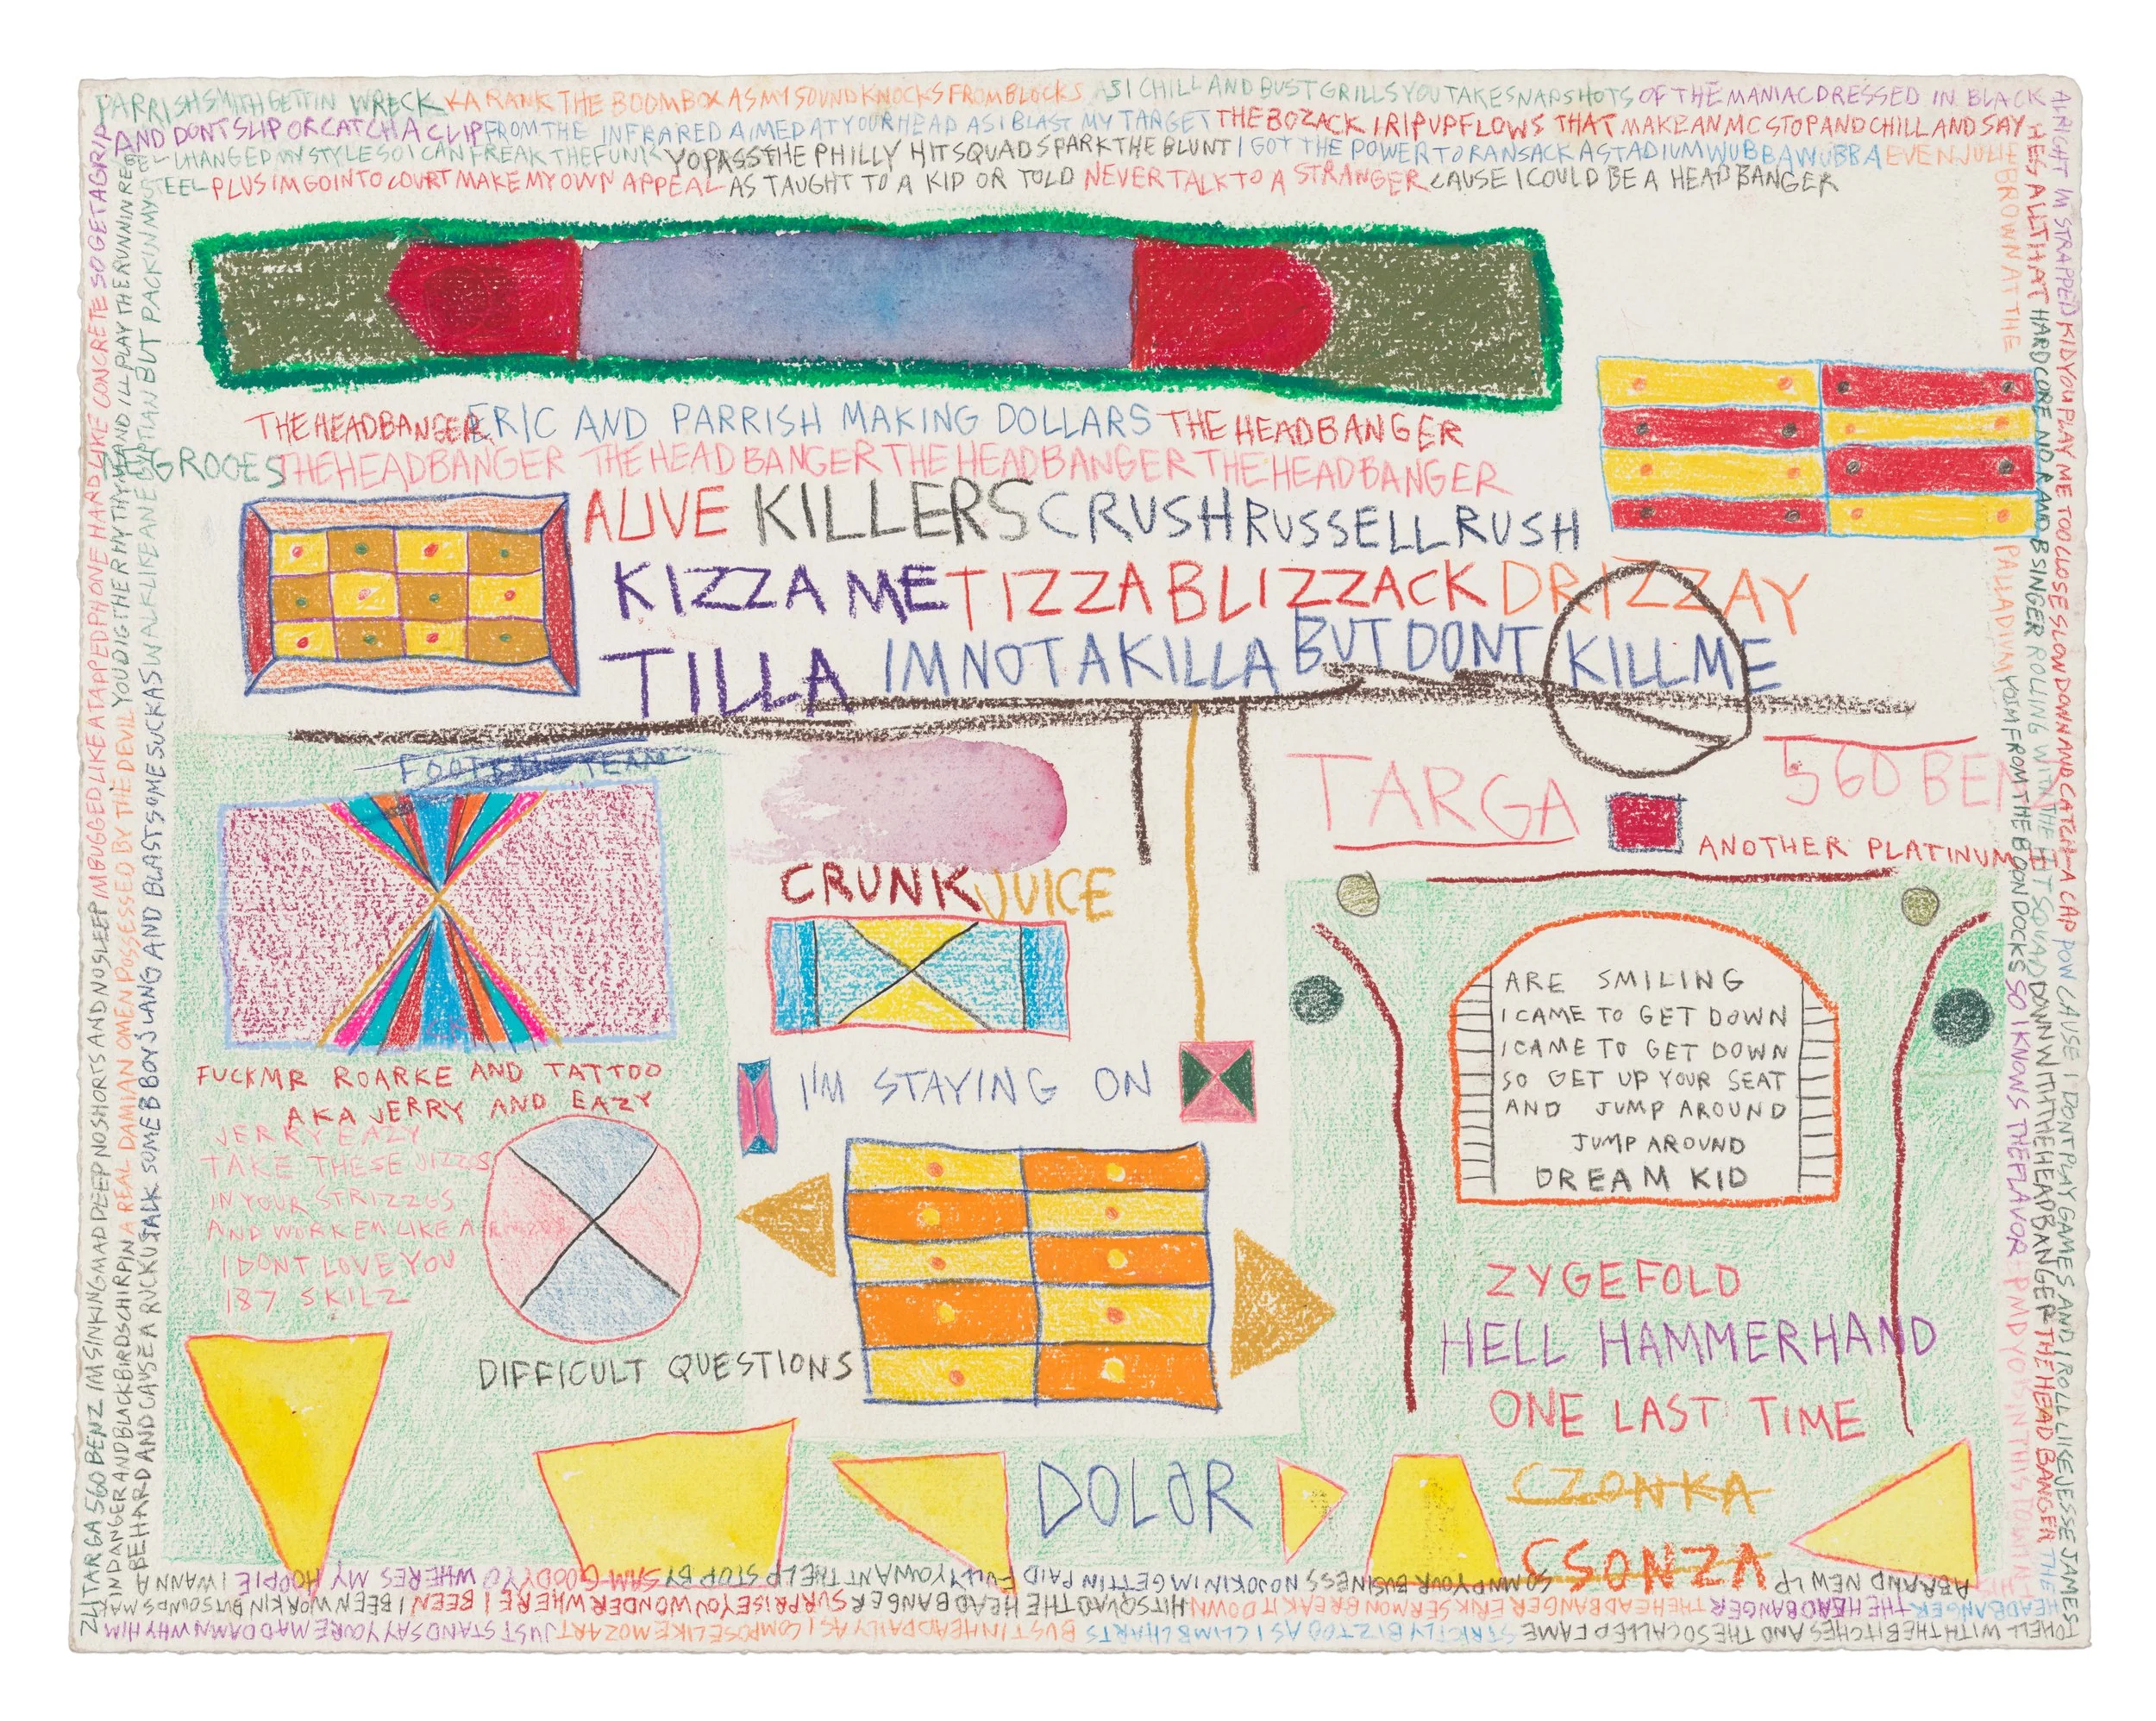 PARRISH SMITH GETTIN WRECK KA RANK THE BOOMBOX AS MY SOUND KNOCKS FROM BLOCKS AS I CHILL AND BUST GRILLS YOU TAKE SNAPSHOTS OF THE MANIAC DRESSED IN BLACK
AND DONT SLIP OR CATCH A CLIP FROM THE INFRARED AIMED AT YOUR HEAD AS I BLAST MY TARGET THE BOZACK I RIP UP FLOWS THAT MAKE AN MC STOP AND CHILL AND SAY
CHANGED MY STYLE SO I CAN FREAK THE FUNK YO PASS THE PHILLY HIT SQUAD SPARK THE BLUNT I GOT THE POWER TO RANSACK A STADIUM WUBBA WUBBA EVEN JULIE
STEEL PLUS IM GOIN TO COURT MAKE MY OWN APPEAL AS TAUGHT TO A KID OR TOLD NEVER TALK TO A STRANGER CAUSE I COULD BE A HEADBANGER
BROWN AT THE
PALLADIUM YO IM FROM THE BOONDOCKS SO I KNOWS THE FLAVOR PMD YO IS IN THIS
HES ALL THAT HARDCORE NO R AND B SINGER ROLLING WITH THE HIT SQUAD DOWN WITH THE HEADBANGER THE HEADBANGER THE
ARIGHT IM STRAPPED KID YOU PLAY ME TOO CLOSE SLOW DOWN AND CATCH A CAP POW CAUSE I DONT PLAY GAMES AND I ROLL LIKE JESSE JAMES
THE HEADBANGER ERIC AND PARRISH MAKING DOLLARS THE HEADBANGER
GROOES THE HEADBANGER THE HEADBANGER THE HEADBANGER THE HEADBANGER
ALIVE KILLERS CRUSH RUSSELL RUSH
KIZZA ME TIZZA BLIZZACK DRIZZAY
TILLA IM NOT A KILLA BUT DONT KILL ME
FOOTBALL TEAM
TARGA
560 BEN
ANOTHER PLATINUM HIT
CRUNK JUICE
ARE SMILING
I CAME TO GET DOWN
I CAME TO GET DOWN
SO GET UP YOUR SEAT
AND JUMP AROUND
JUMP AROUND
DREAM KID
I'M STAYING ON
FUCK MR ROARKE AND TATTOO
AKA JERRY AND EAZY
JERRY EAZY
TAKE THESE JIZZS
IN YOUR STRIZZLS
AND WORK EM LIKE A
I DONT LOVE YOU
187 SKILZ
DIFFICULT QUESTIONS
ZYGEFOLD
HELL HAMMERHAND
ONE LAST TIME
DOLOR
CZONKA
CSONZA
TO HELL WITH THE BITCHES AND THE SO CALLED FAME STRICTLY BIZ TOO AS I CLIMB CHARTS BUSTIN HEAD DAILY AS I COMPOSE LIKE MOZART JUST STAND SAY YOURE MAD DAMN WHY HIM
HEADBANGER THE HEADBANGER THE HEADBANGER ERIK SERMON BREAK IT DOWN HIT SQUAD THE HEADBANGER SURPRISE YOU WONDER WHERE I BEEN I BEEN WORKIN BUT SOUNDS MAK
A BRAND NEW LP SO MIND YOUR BUSINESS NO JOKIN IM GETTIN PAID FULLY YOU WANT THE LP STOP BY SAM GOODY YO WHERES MY HOODIE I WANNA
24 TARGA 560 BENZ IM SINKING MAD DEEP NO SHORTS AND NO SLEEP IM BUGGED LIKE A TAPPED PHONE HARD LIKE CONCRETE SO GET A GRIP
IN DANGER AND BLACKBIRDS CHIRPIN A REAL DAMIAN OMEN POSSESSED BY THE DEVIL YOU DIG THE RHYTHM AND ILL PLAY THE RUNNIN REBEL
BE HARD AND CAUSE A RUCKUS TALK SOME B BOY LANG AND BLAST SOME SUCKAS WALK LIKE AN EGYPTIAN BUT PACKIN MY